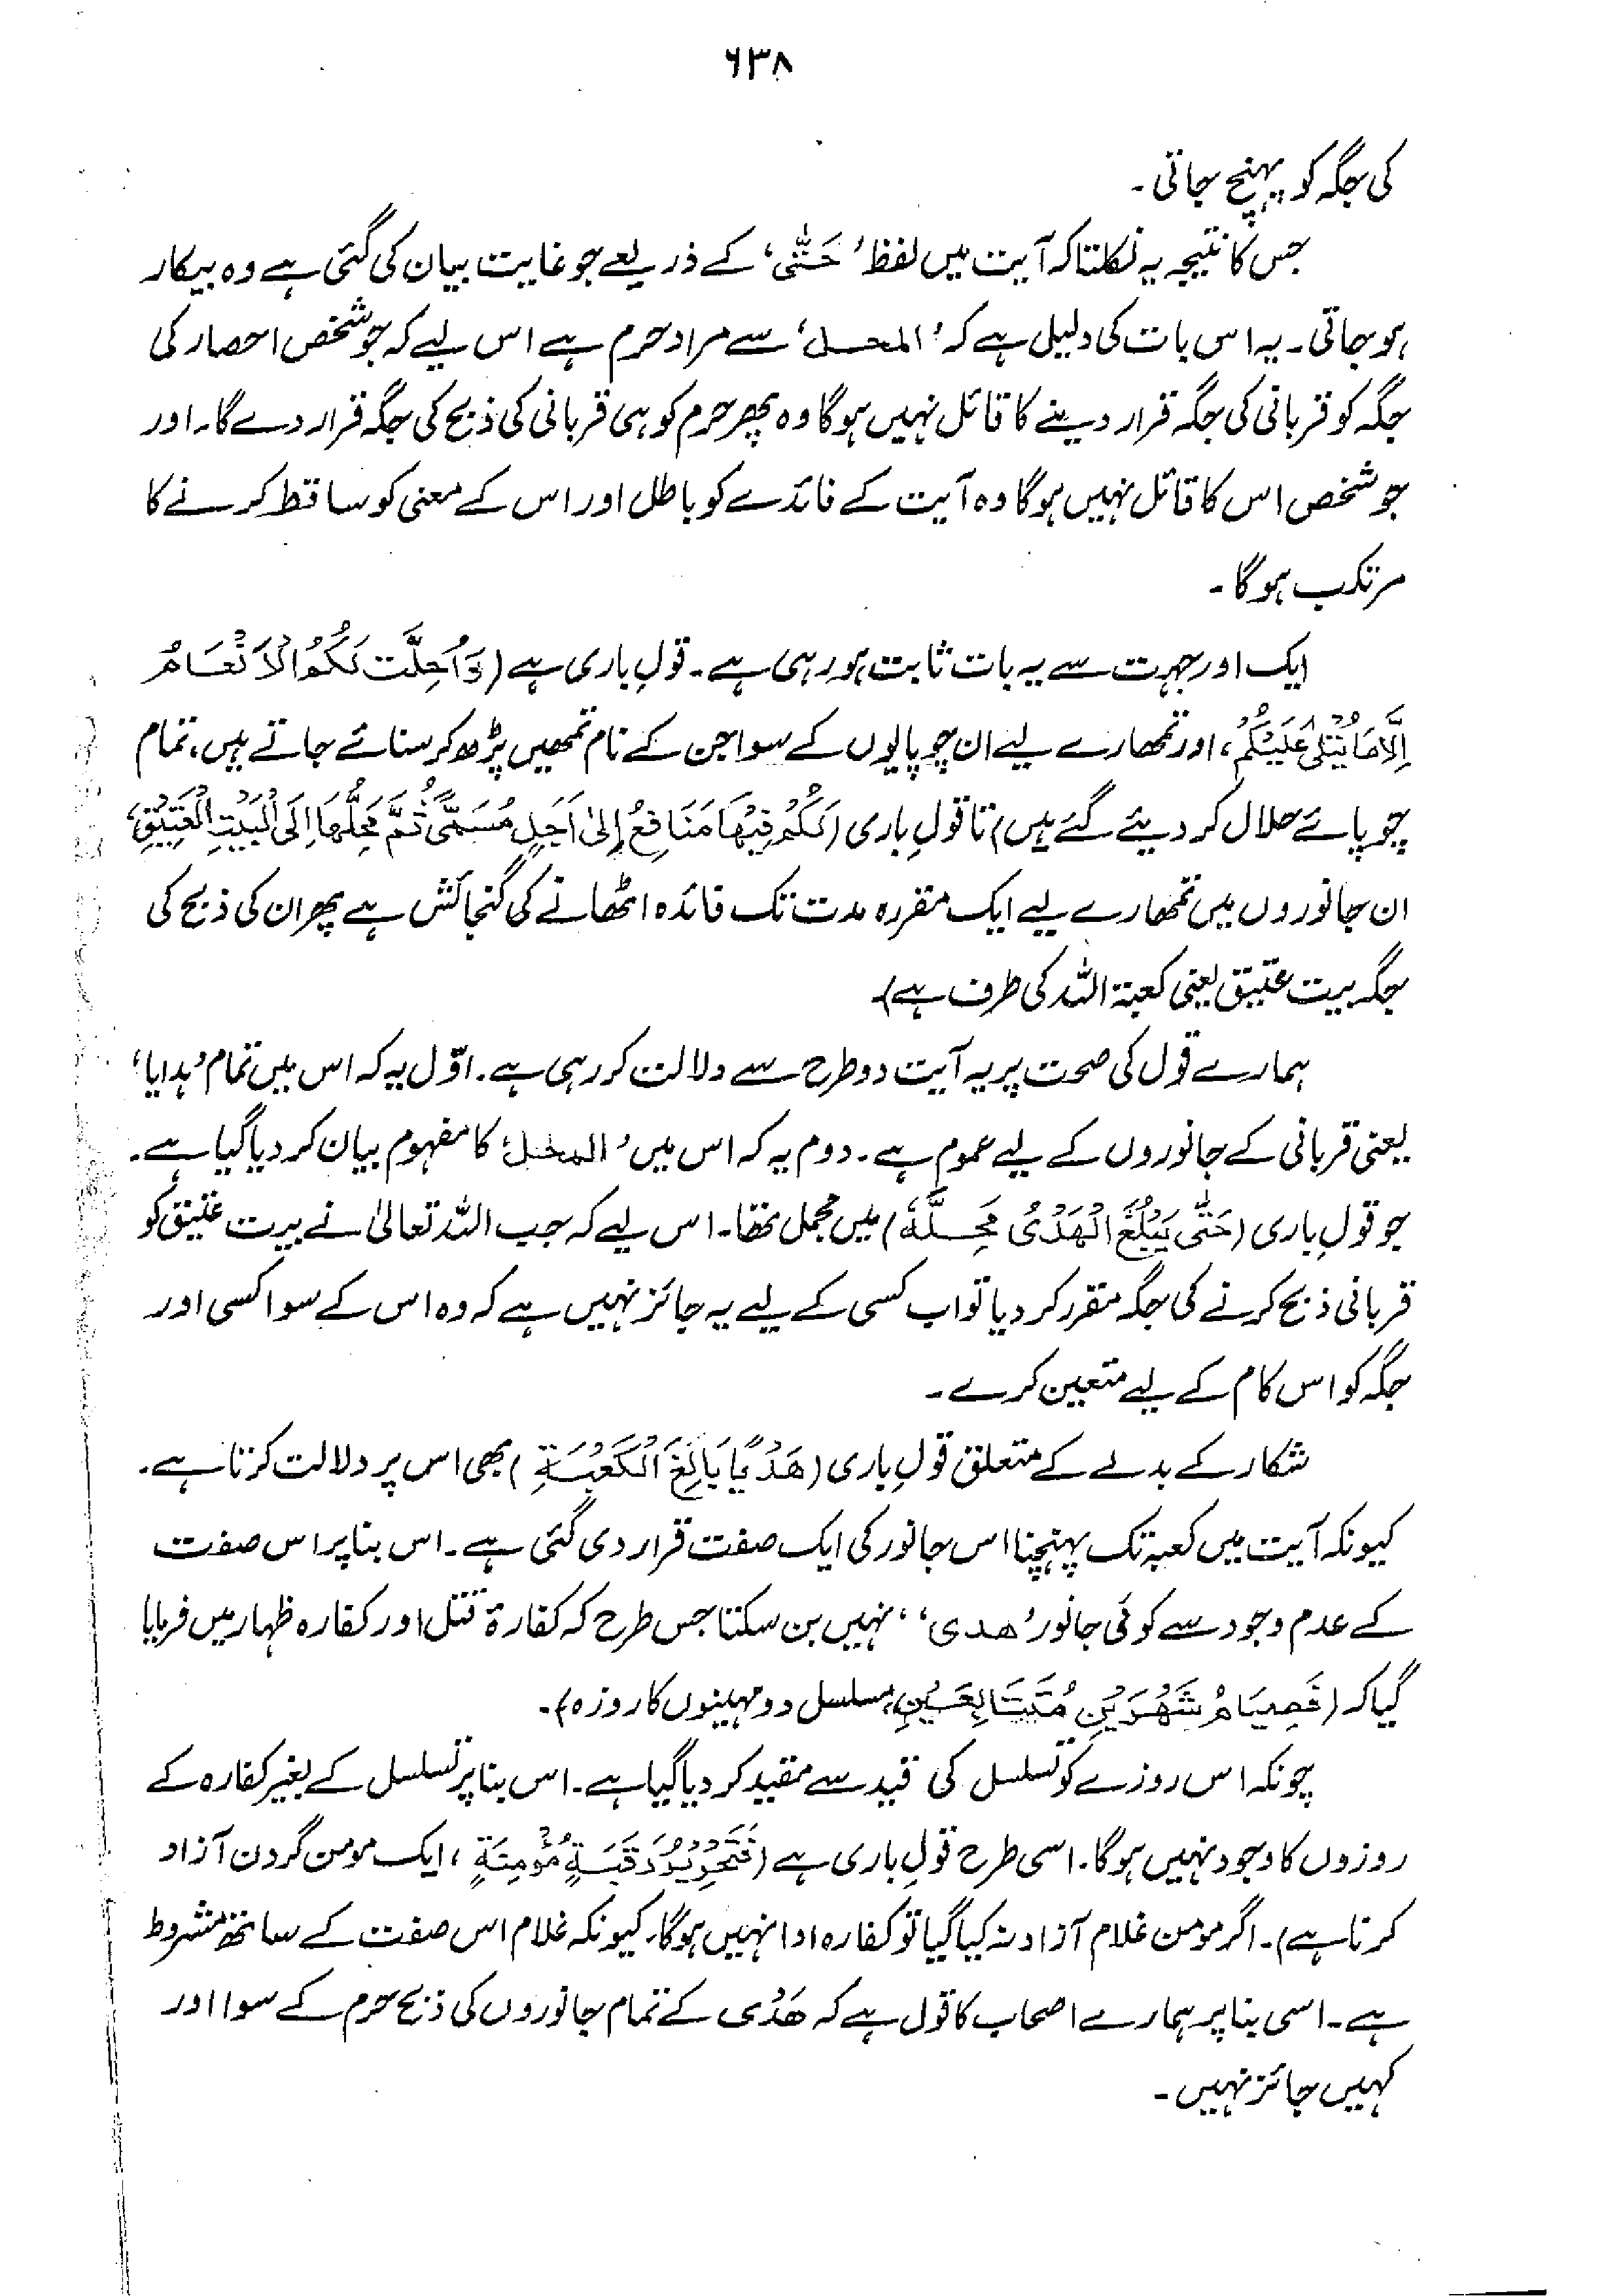 ۶۳۸
کی جگہ کو پہنچ جاتی۔
جس کا نتیجہ یہ نکلتا کہ آیت میں لفظ ’حَتّٰی‘ کے ذریعے جو غایت بیان کی گئی ہے وہ بیکار
ہو جاتی۔ یہ اس بات کی دلیل ہے کہ ’المحل‘ سے مراد حرم ہے اس لیے کہ جو شخص احصار کی
جگہ کو قربانی کی جگہ قرار دینے کا قائل نہیں ہوگا وہ پھر حرم کو ہی قربانی کی ذبح کی جگہ قرار دے گا۔ اور
جو شخص اس کا قائل نہیں ہوگا وہ آیت کے فائدے کو باطل اور اس کے معنی کو ساقط کرنے کا
مرتکب ہوگا۔
ایک اور جہت سے یہ بات ثابت ہو رہی ہے۔ قولِ باری ہے (وَاُحِلَّت لَکُمُ الْاَنْعَامُ
اِلَّا مَا یُتْلٰی عَلَیْکُمْ، اور تمھارے لیے ان چوپایوں کے سوا جن کے نام تمھیں پڑھ کر سنائے جاتے ہیں، تمام
چوپائے حلال کر دیئے گئے ہیں) تا قولِ باری (لَکُمْ فِیْهَا مَنَافِعُ اِلٰی اَجَلٍ مُسَمًّی ثُمَّ مَحِلُّهَا اِلَی الْبَیْتِ الْعَتِیْقِ،
ان جانوروں میں تمھارے لیے ایک مقررہ مدت تک فائدہ اٹھانے کی گنجائش ہے پھر ان کی ذبح کی
جگہ بیت عتیق یعنی کعبۃ اللہ کی طرف ہے)۔
ہمارے قول کی صحت پر یہ آیت دو طرح سے دلالت کر رہی ہے۔ اوّل یہ کہ اس میں تمام ’ہدایا‘
یعنی قربانی کے جانوروں کے لیے عموم ہے۔ دوم یہ کہ اس میں ’المحل‘ کا مفہوم بیان کر دیا گیا ہے۔
جو قولِ باری (حَتّٰی یَبْلُغَ الْهَدْیُ مَحِلَّهٗ) میں مجمل تھا۔ اس لیے کہ جب اللہ تعالیٰ نے بیت عتیق کو
قربانی ذبح کرنے کی جگہ مقرر کر دیا تو اب کسی کے لیے یہ جائز نہیں ہے کہ وہ اس کے سوا کسی اور
جگہ کو اس کام کے لیے متعین کرے۔
شکار کے بدلے کے متعلق قولِ باری (هَدْیًا بَالِغَ الْکَعْبَةِ) بھی اس پر دلالت کرتا ہے۔
کیونکہ آیت میں کعبہ تک پہنچنا اس جانور کی ایک صفت قرار دی گئی ہے۔ اس بنا پر اس صفت
کے عدم وجود سے کوئی جانور ’هدی‘ نہیں بن سکتا جس طرح کہ کفارۃ قتل اور کفارہ ظہار میں فرمایا
گیا کہ (فَصِیَامُ شَهْرَیْنِ مُتَتَابِعَیْنِ، مسلسل دو مہینوں کا روزہ)۔
چونکہ اس روزے کو تسلسل کی قید سے مقید کر دیا گیا ہے۔ اس بنا پر تسلسل کے بغیر کفارہ کے
روزوں کا وجود نہیں ہوگا۔ اسی طرح قولِ باری ہے (فَتَحْرِیْرُ رَقَبَةٍ مُؤْمِنَةٍ، ایک مومن گردن آزاد
کرنا ہے)۔ اگر مومن غلام آزاد نہ کیا گیا تو کفارہ ادا نہیں ہوگا۔ کیونکہ غلام اس صفت کے ساتھ مشروط
ہے۔ اسی بنا پر ہمارے اصحاب کا قول ہے کہ هَدْی کے تمام جانوروں کی ذبح حرم کے سوا اور
کہیں جائز نہیں۔